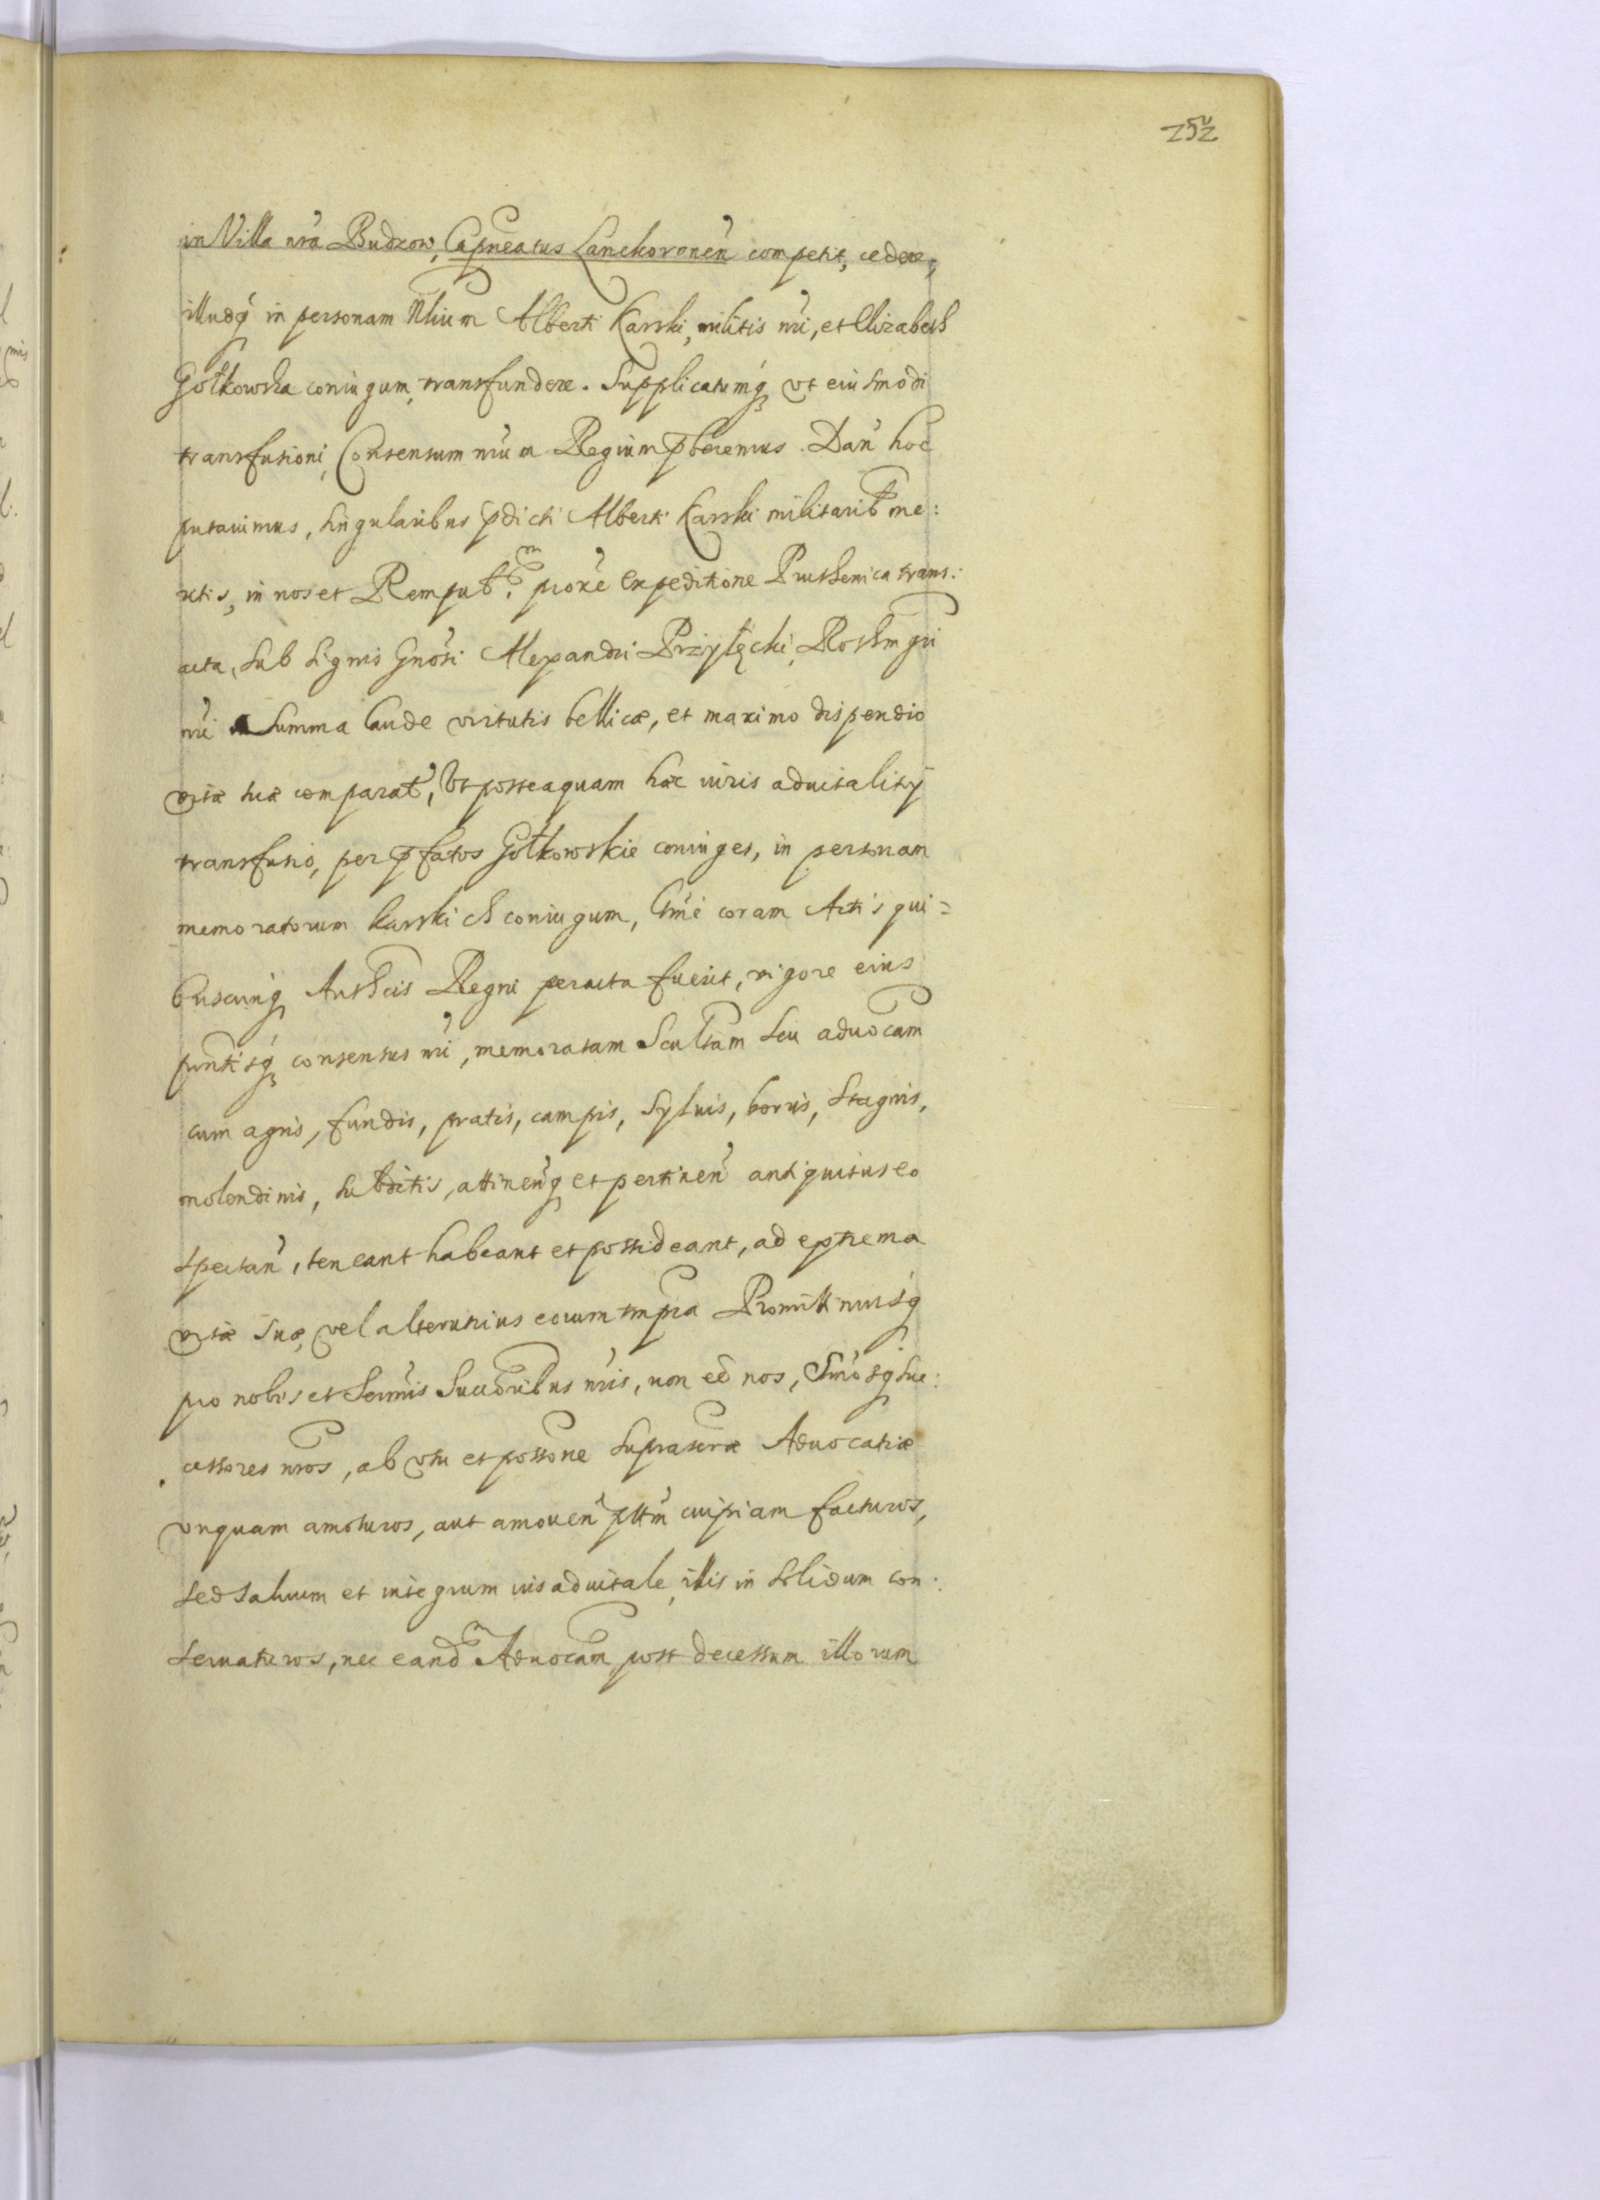 252
in Villa nrã Budzow, Capneatus Lanckoronen̄ competit, cedere,
illudq́ in personam Nlium Alberti Karski, militis nri, et Elizabeth
Gołkowska coniugum, transfundere. Supplicatumq́ vt eiusmodi
transfusioni, Consensum nrũm Regium p̃beremus. Dan̄ hoc
putauimus, singularibus p̃dicti Alberti Karski militarib̃ me:
ritis, in nos et Rempub.m proxe Expeditione Pruthenica trans:
acta, sub signis Gnosi Alexandri Przyłęcki, Rothmgri
nri summa laude virtutis bellicæ, et maximo dispendio
vitæ suæ comparat̃, Vt posteaquam hæc iuris aduitalitij
transfusio, per p̃fatos Gołkowskie coniuges, in personam
memoratorum Karskich coniugum, Gmẽ coram Actis qui=
buscunq́ Authcis Regni peracta fuerit, vigore eius
pũntisq́ consensus nri, memoratam Scultam seu aduocam
cum agris, fundis, pratis, campis, Syluis, borris, Stagnis,
molendinis, subditis, attinen̄q́ et pertinen̄ antiquitus eo
spectan̄, teneant habeant et possideant, ad extrema
vitæ suæ, vel alterutrius eorum tmpra Promittimusq́
pro nobis et Sermis Succoribus nris, non eẽ nos, Smosq́ suc:
cessores nros, ab vsu et possone suprascræ Aduocatiæ
vnquam amoturos, aut amouen̄ ptt̃m cuipiam facturos,
sed saluum et integrum ius aduitale, illis in solidum con:
seruaturos, nec eandm Aduocam post decessum illorum